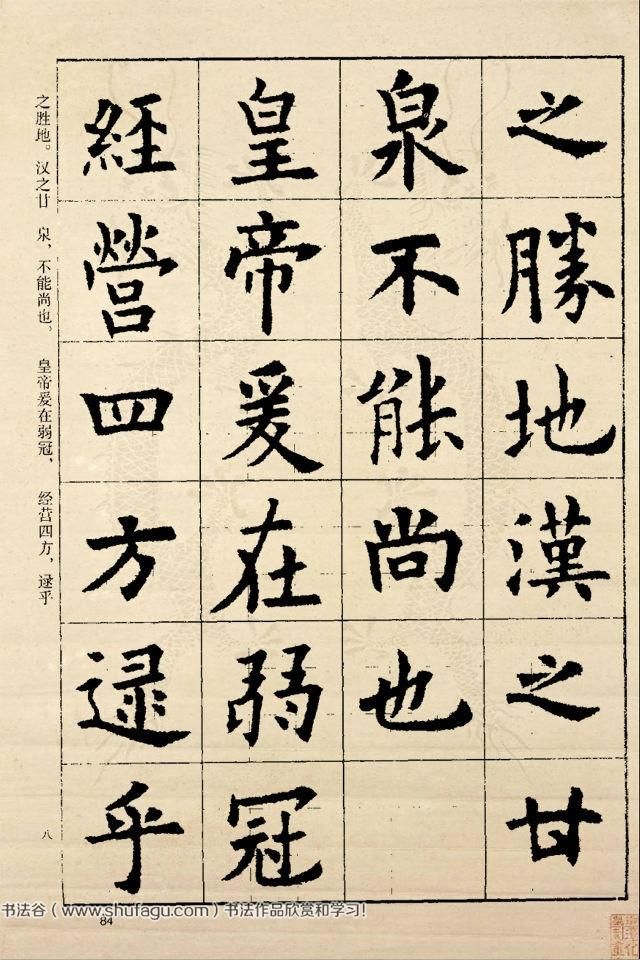 之勝地漢之甘
泉不能尚也
皇帝爰在弱冠
經營四方逯乎
之胜地。汉之甘 泉，不能尚也。 皇帝爰在弱冠， 经营四方，逯乎
八
84
书法谷（www.shufagu.com）书法作品欣赏和学习!